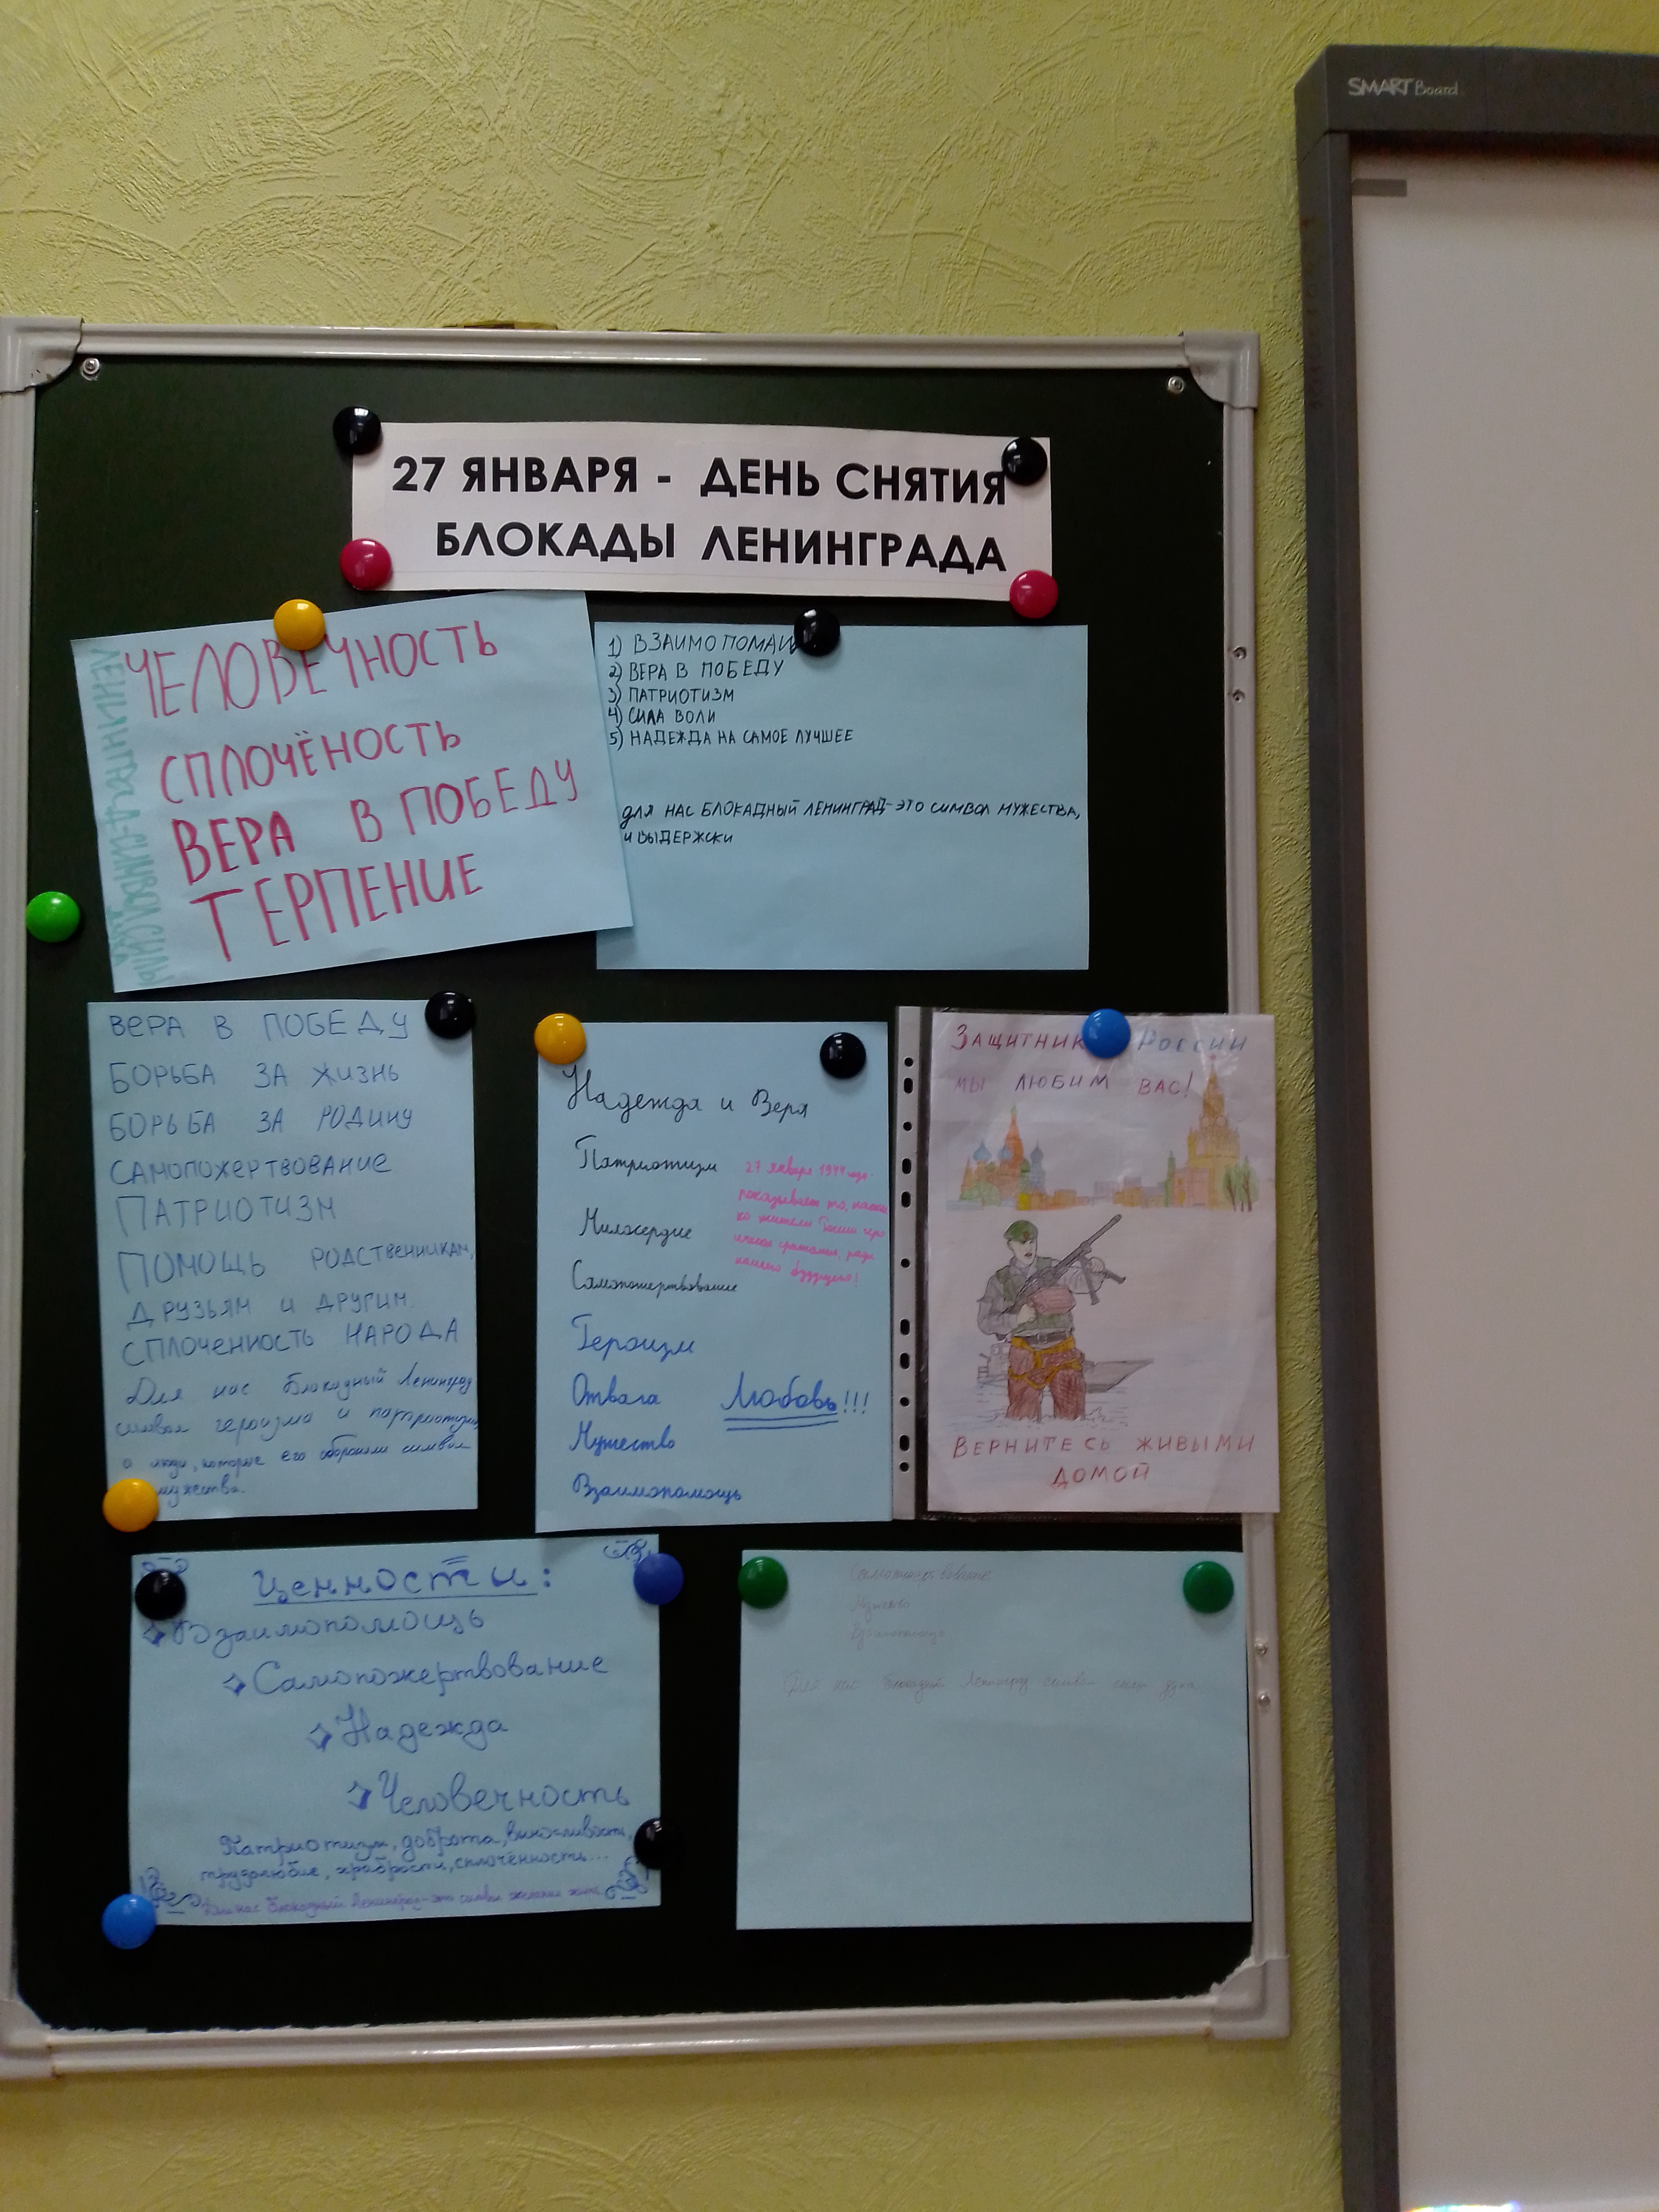 SMART Board
27 ЯНВАРЯ - ДЕНЬ СНЯТИЯ
БЛОКАДЫ ЛЕНИНГРАДА
ЧЕЛОВЕЧНОСТЬ
СПЛОЧЁНОСТЬ
ВЕРА В ПОБЕДУ
ТЕРПЕНИЕ
ЛЕНИНГРАД-СИМВОЛ СИЛЫ
1)
2) ВЕРА В ПОБЕДУ
3) ПАТРИОТИЗМ
4) СИЛА ВОЛИ
5) НАДЕЖДА НА САМОЕ ЛУЧШЕЕ
ДЛЯ НАС БЛОКАДНЫЙ ЛЕНИНГРАД-ЭТО СИМВОЛ МУЖЕСТВА,
И ВЫДЕРЖКИ
ВЕРА В ПОБЕДУ
БОРЬБА ЗА ЖИЗНЬ
БОРЬБА ЗА РОДИНУ
САМОПОЖЕРТВОВАНИЕ
ПАТРИОТИЗМ
ПОМОЩЬ РОДСТВЕННИКАМ,
ДРУЗЬЯМ И ДРУГИМ.
СПЛОЧЕННОСТЬ НАРОДА
Для нас блокадный Ленинград
символ героизма и патриотизма,
а люди, которые его обороняли символ
мужества.
Надежда и Вера
Патриотизм
Милосердие
Самопожертвование
Героизм
Отвага
Мужество
Взаимопомощь
27 января 1944
показывает то,
жители
сражались, ради
нашего будущего!
Любовь!!!
ЗАЩИТНИК РОССИИ
МЫ ЛЮБИМ ВАС!
ВЕРНИТЕСЬ ЖИВЫМИ
ДОМОЙ
Ценности:
Взаимопомощь
Самопожертвование
Надежда
Человечность
Патриотизм, доброта, выносливость,
трудолюбие, храбрость, сплочённость...
Для нас блокадный Ленинград-это символ желания жить
Мужество
Взаимопомощь
Для нас блокадный Ленинград символ силы духа